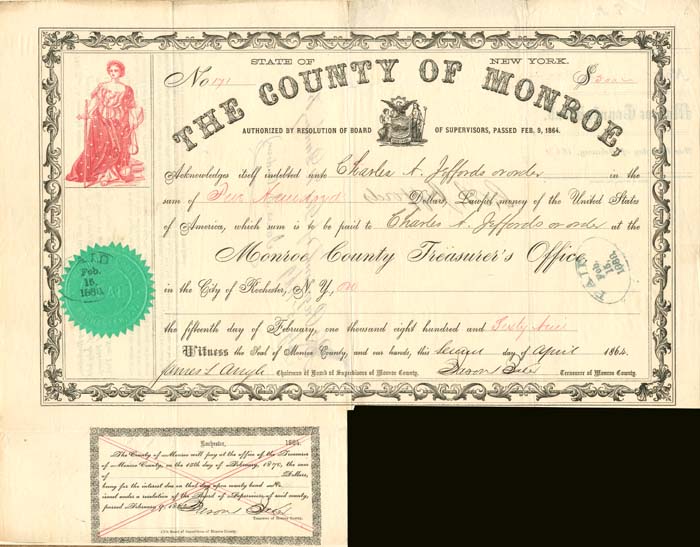 STATE OF NEW YORK.
No 171 $
THE COUNTY OF MONROE,
AUTHORIZED BY RESOLUTION OF BOARD OF SUPERVISORS, PASSED FEB. 9, 1864.
Acknowledges itself indebted unto Charles A. Jeffords or order in the
sum of Hundred Dollars, Lawful money of the United States
of America, which sum is to be paid to Charles A. Jeffords or order at the
Monroe County Treasurer's Office,
in the City of Rochester, N. Y., on
the fifteenth day of February, one thousand eight hundred and Sixty
Witness the Seal of Monroe County, and our hands, this day of April 1864.
James L. Angle Chairman of Board of Supervisors of Monroe County. Treasurer of Monroe County.
PAID
Feb.
15,
PAID
Feb.
15,
Rochester, 1864.
The County of Monroe will pay at the office of the Treasurer
of Monroe County, on the 15th day of February, 1870, the sum
of Dollars,
being for the interest due on that day upon county bond No
issued under a resolution of the Board of Supervisors of said county,
passed February 9, 1864.
Treasurer of Monroe County.